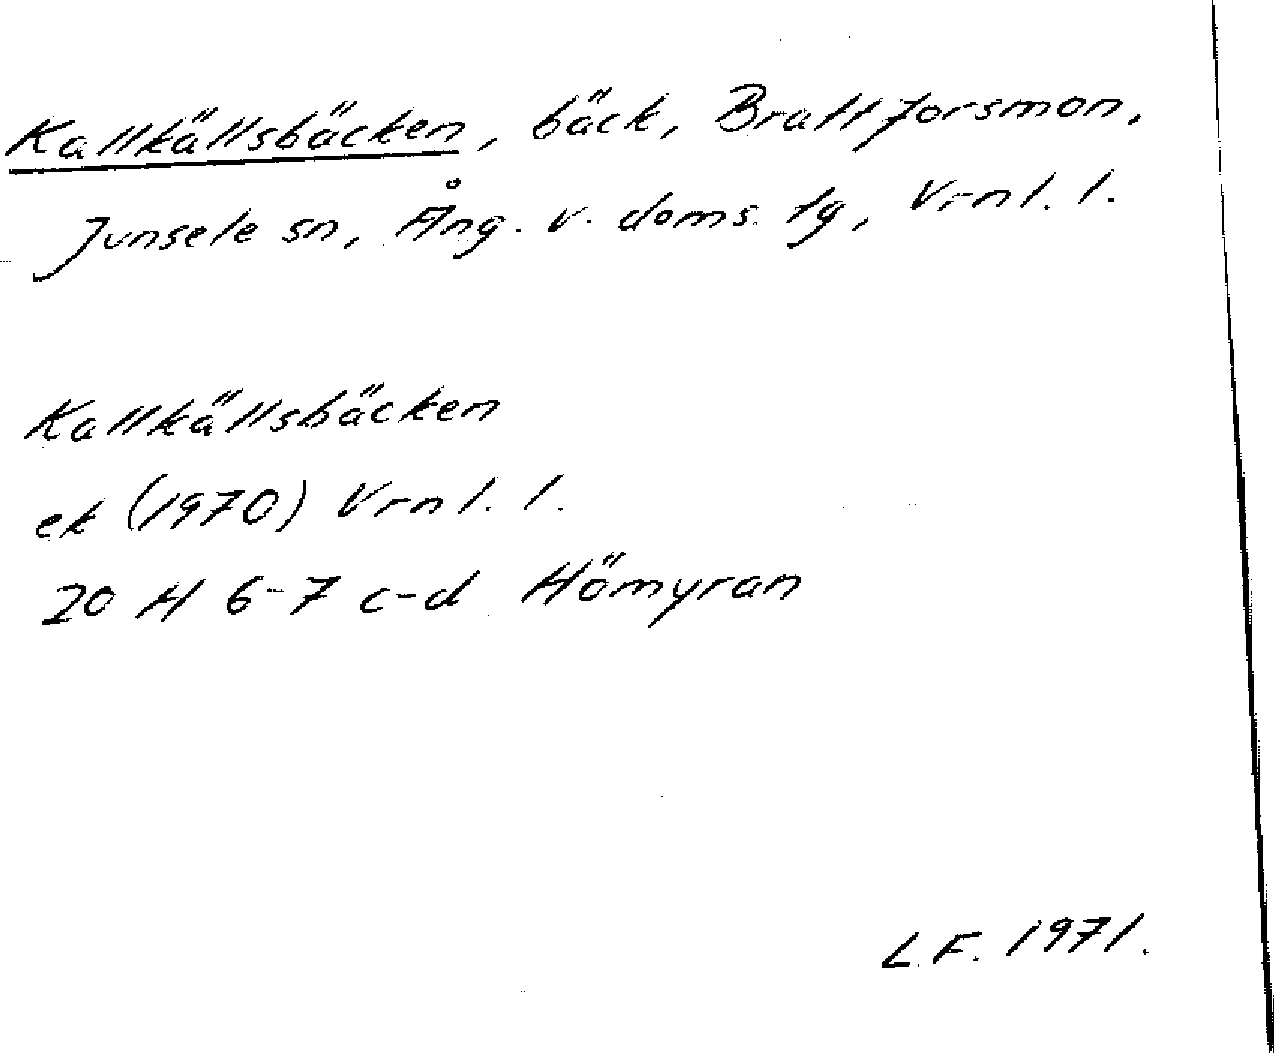 Kallkällsbäcken, bäck, Brattforsmon,
Junsele sn, Ång. v. doms. tg, Vrnl. l.
Kallkällsbäcken
ek (1970) Vrnl. l.
20 H 6-7 c-d Hömyran
L.F. 1971.